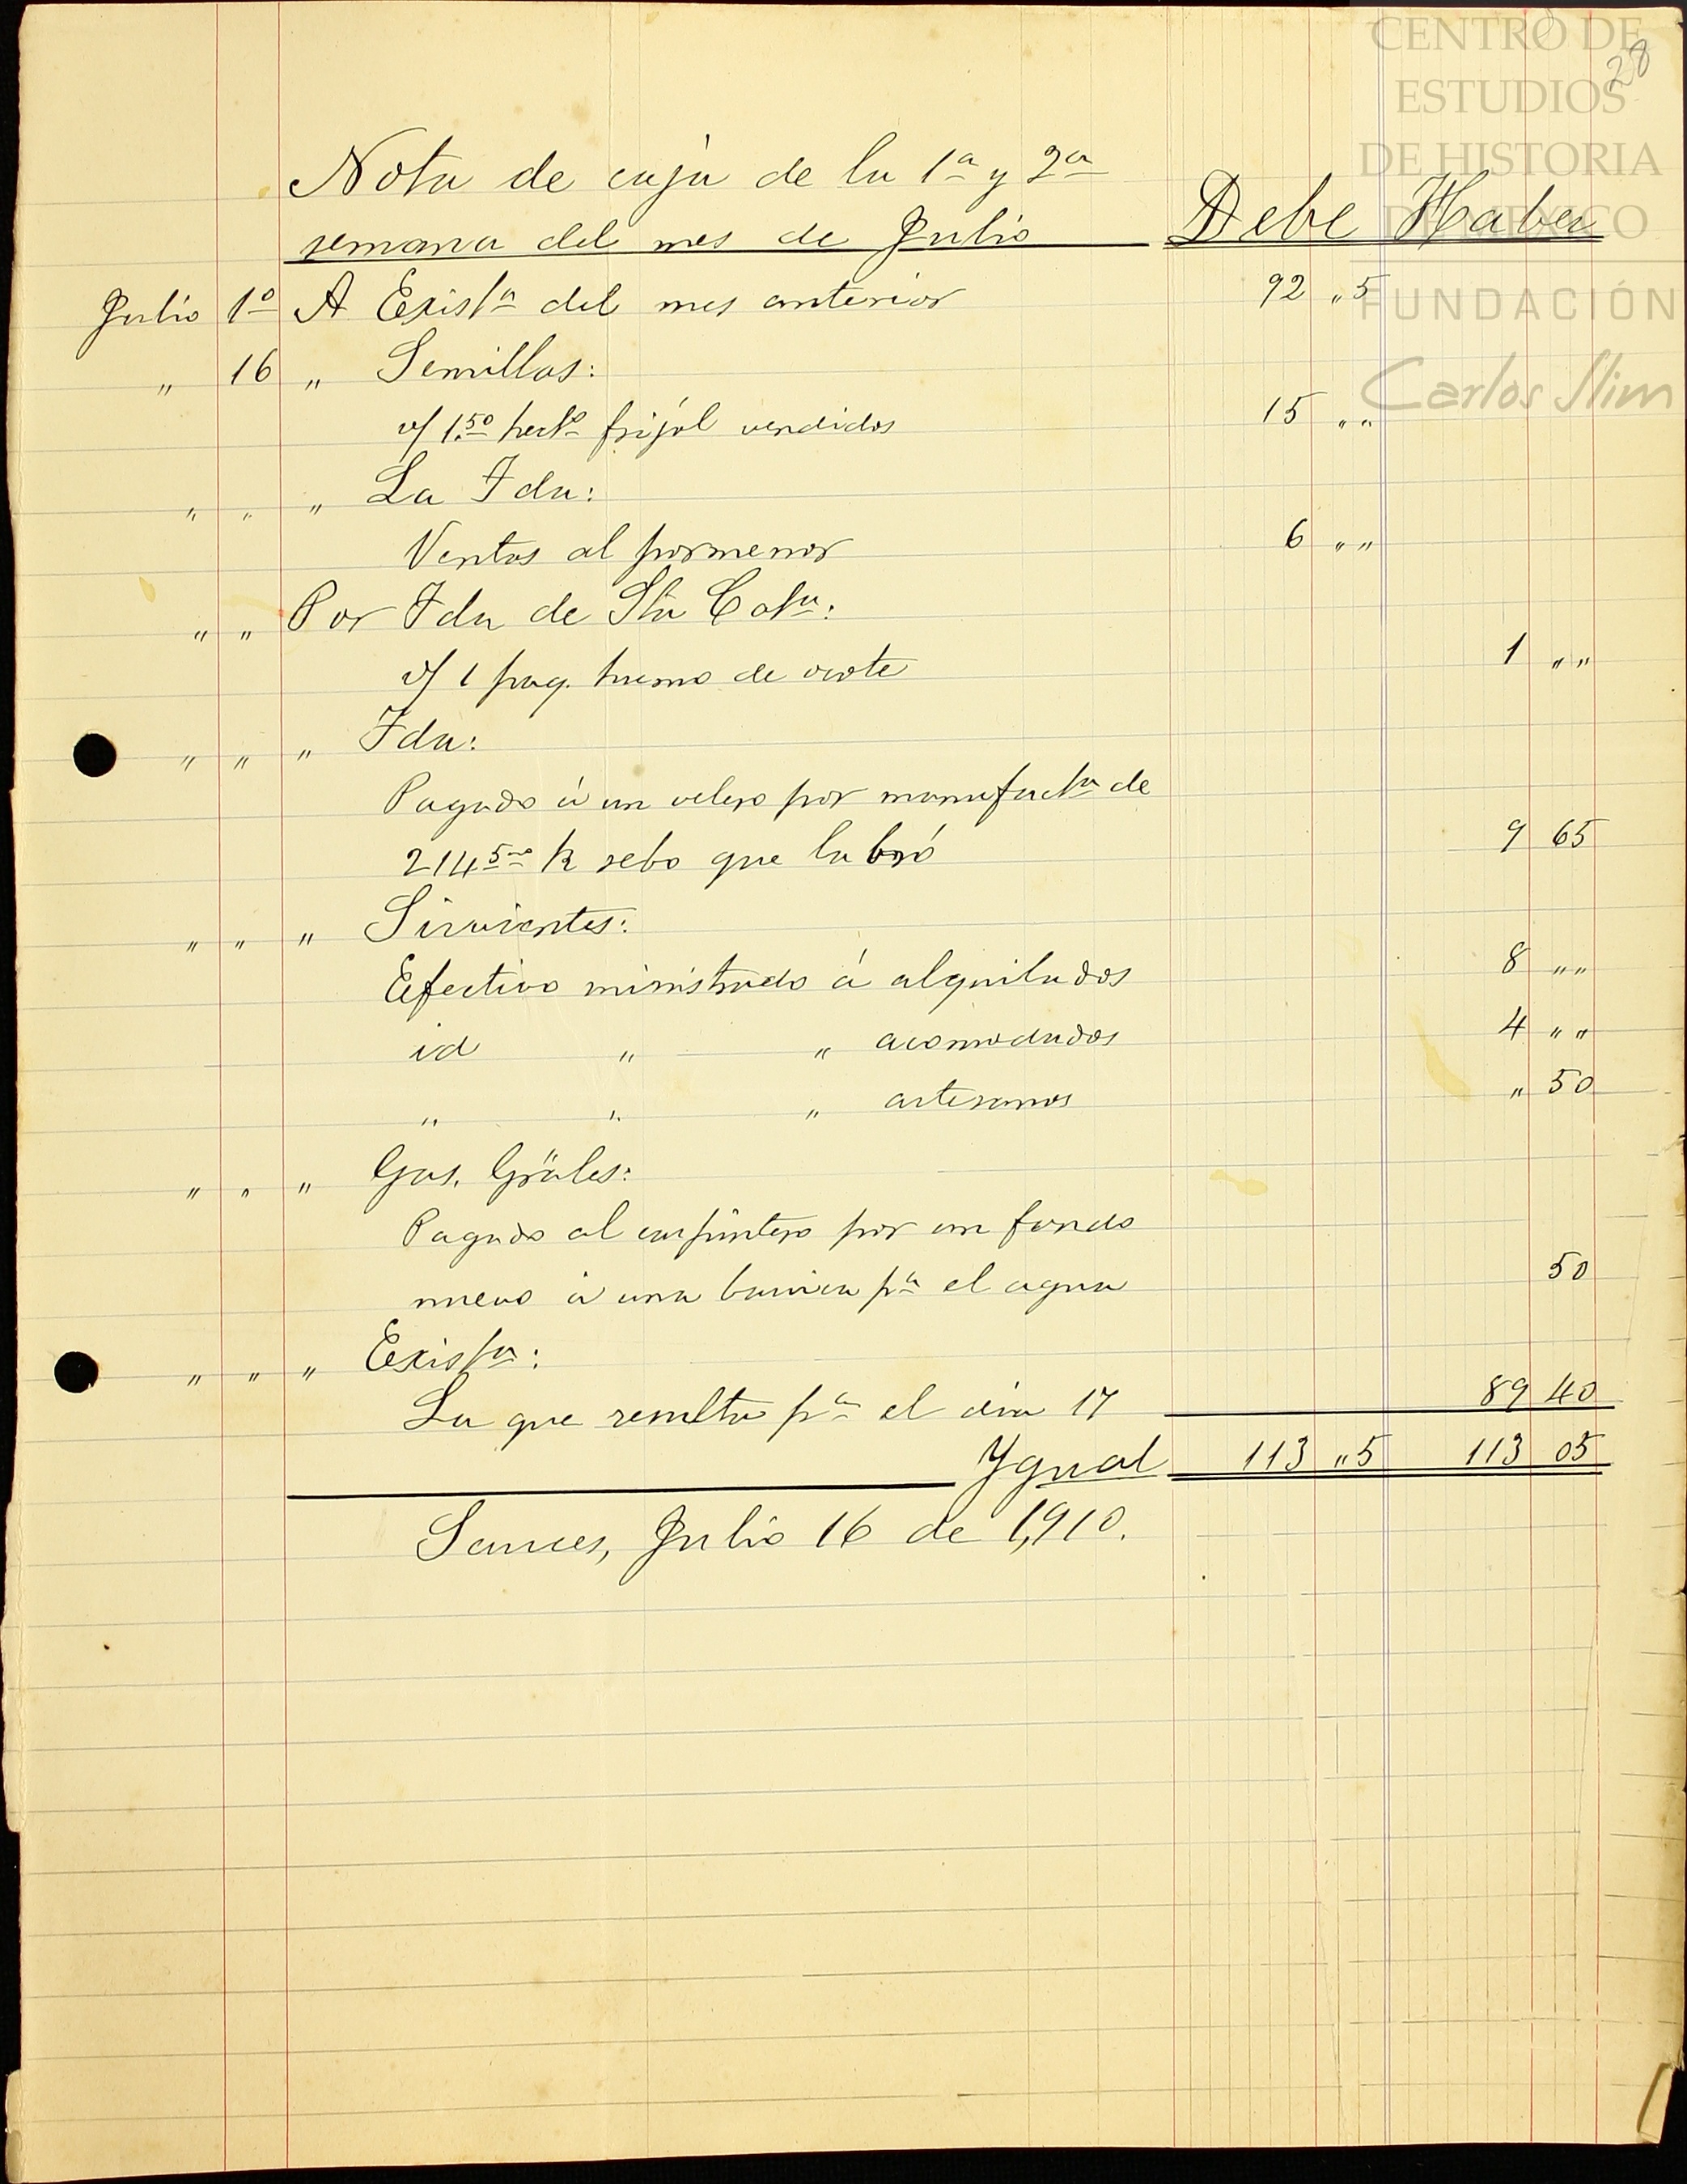 CENTRO DE
ESTUDIOS
DE HISTORIA
DE MÉXICO
FUNDACIÓN
Carlos Slim
28
Nota de caja de la 1ª y 2ª
semana del mes de Julio Debe Haber
Julio 1º A Existª del mes anterior 92 „5
„ 16 „ Semillas:
v/ 1.50 hectº frijol vendidos 15 „„
„ „ „ La Tda:
Ventas al pormenor 6 „„
„ „ Por Tda de Sta Catª:
v/ 1 paq. humo de ocote 1 „„
„ „ „ Tda:
Pagado á un velero por manufactª de
214 500 k sebo que labró 9 65
„ „ „ Sirvientes:
Efectivo ministrado á alquilados 8 „„
id „ „ acomodados 4 „„
„ „ „ artesanos „ 50
„ „ „ Gas. Gräles:
Pagado al carpintero por un fondo
nuevo á una barrica pª el agua 50
„ „ „ Existª:
La que resulta pª el día 17 89 40
Ygual 113 „5 113 05
Sauces, Julio 16 de 1,910.